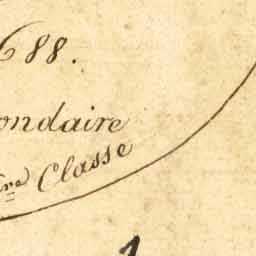 688.
ondaire
re Classe
1